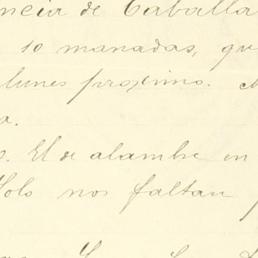 ncia de Caballa
10 manadas, qu
lunes próximo. 
a.
o. El de alambre en
Solo nos faltan